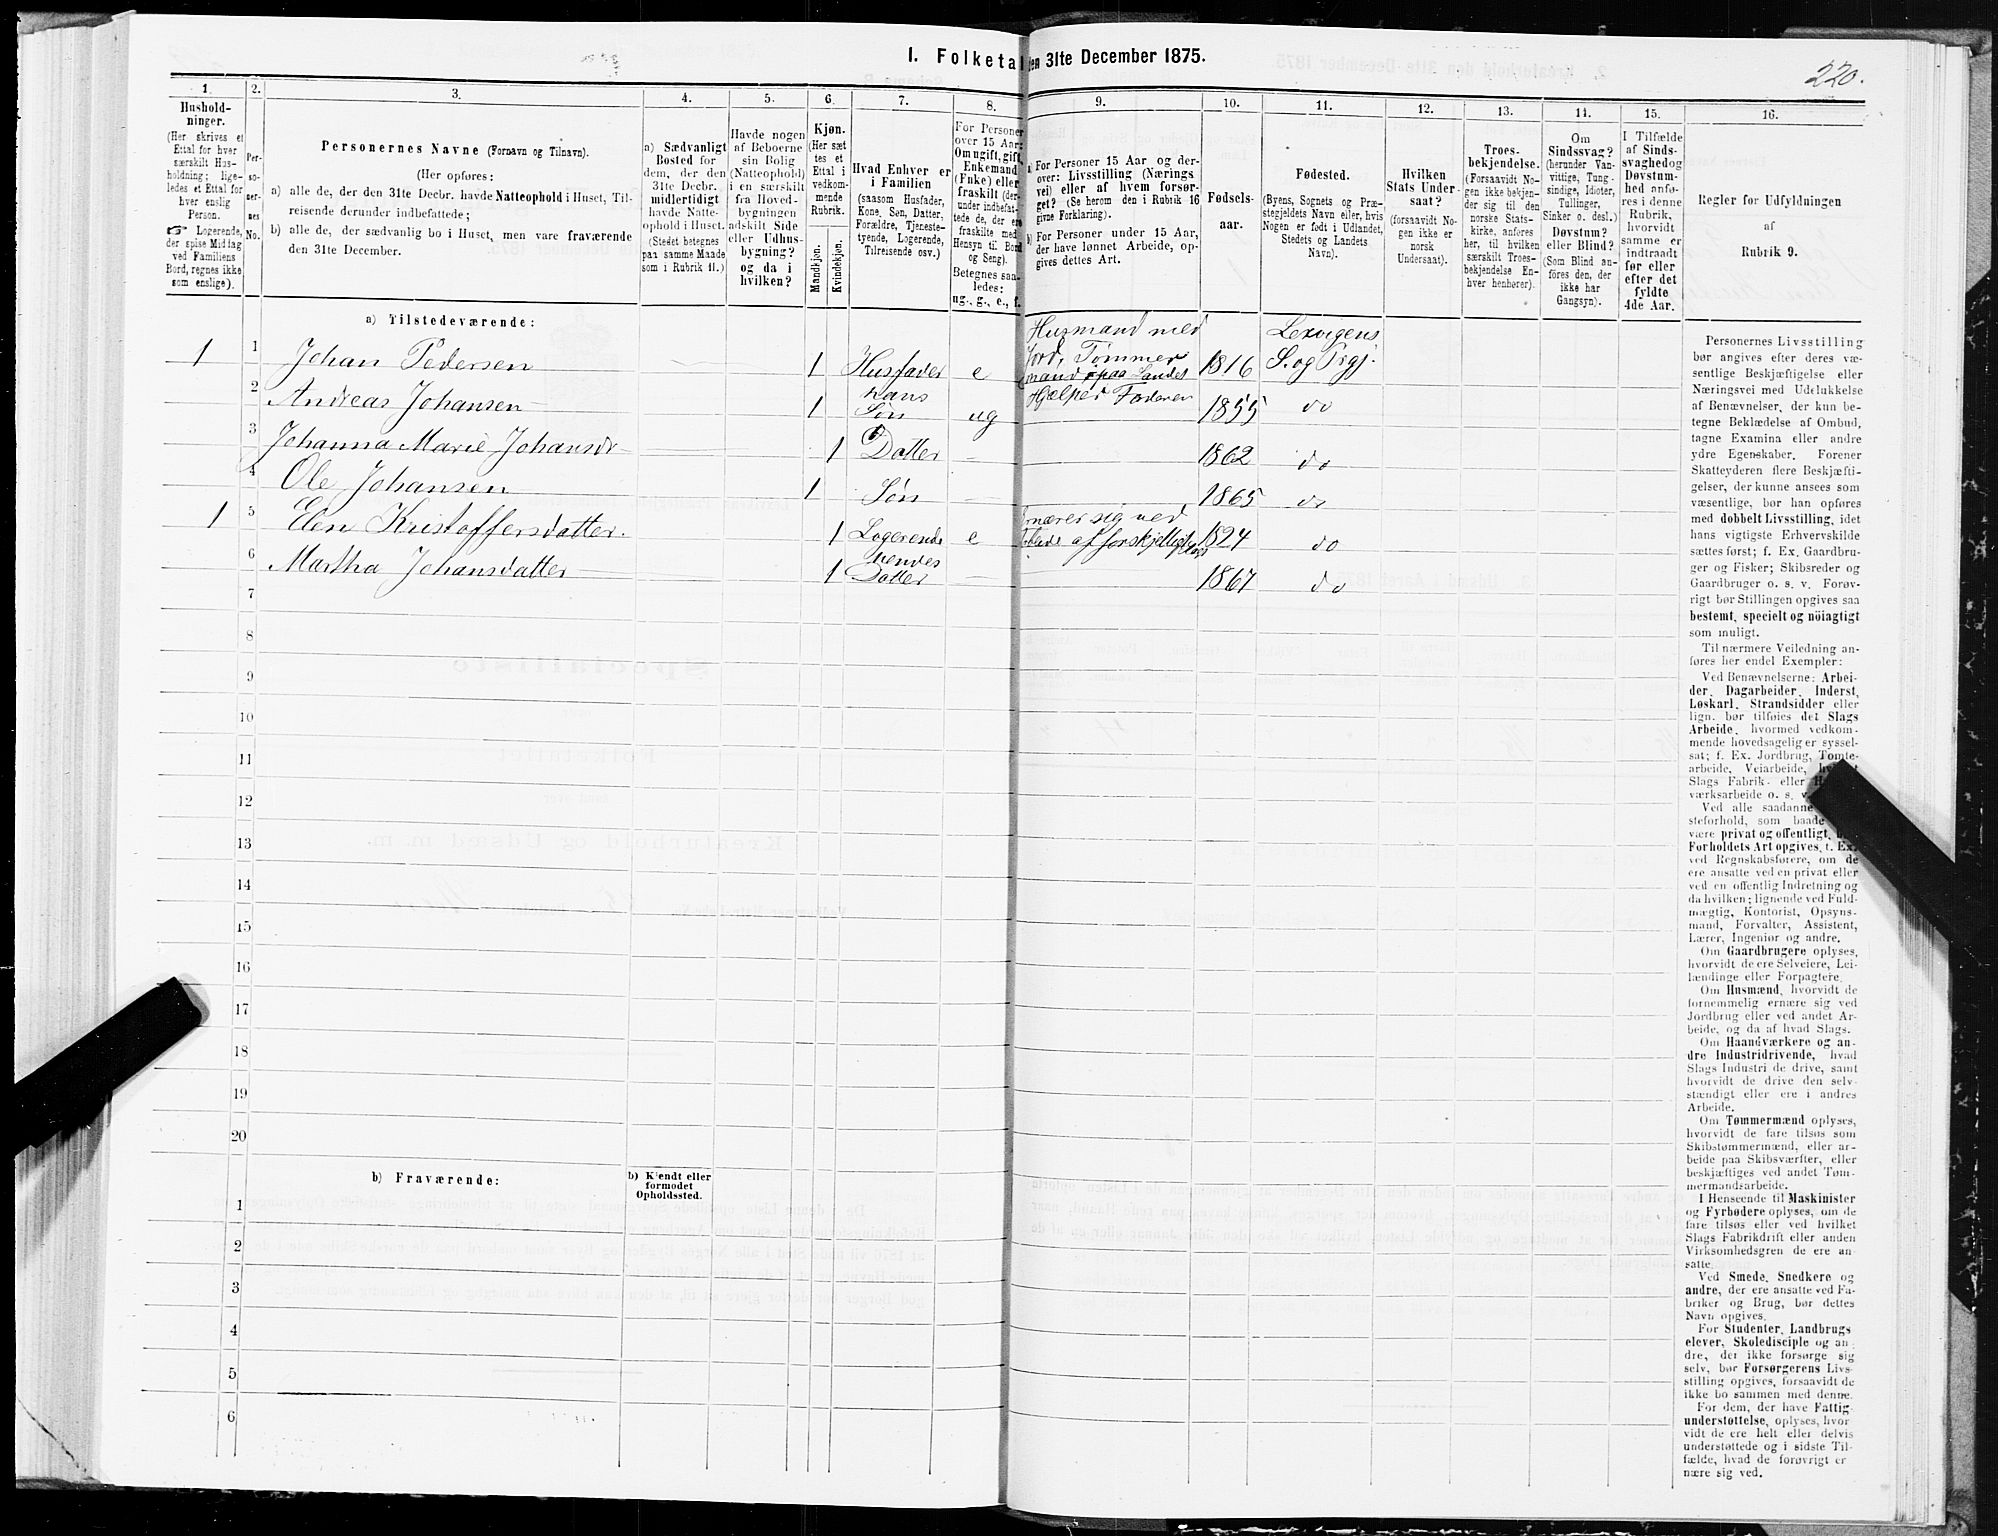 I. Folketal den 31te December 1875.
220.
1.
2.
3.
4.
5.
6.
7.
8.
9.
10.
11.
12.
13.
14.
15.
16.
Hushold-
ninger.
(Her skrives et
Ettal for hver
særskilt Hus-
holdning; lige-
ledes et Ettal for
hver enslig
Person.
☞ Logerende,
der spise Middag
ved Familiens
Bord, regnes ikke
som enslige).
Per-
so-
ner-
nes
No.
Personernes Navne (Fornavn og Tilnavn).
(Her opføres:
a) alle de, der den 31te Decbr. havde Natteophold i Huset, Til-
reisende derunder indbefattede;
b) alle de, der sædvanlig bo i Huset, men vare fraværende
den 31te December.
a) Sædvanligt
Bosted for
dem, der den
31te Decbr.
midlertidigt
havde Natte-
ophold i Huset.
(Stedet betegnes
paa samme Maade
som i Rubrik 11.)
Havde nogen
af Beboerne
sin Bolig
(Natteophold)
i en særskilt
fra Hoved-
bygningen
adskilt Side
eller Udhus-
bygning?
og da i
hvilken?
Kjøn.
(Her sæt
tes et
Ettal i
vedkom-
mende
Rubrik.
Mandkjøn.
Kvindekjøn.
Hvad Enhver er
i Familien
(saasom Husfader,
Kone, Søn, Datter,
Forældre, Tjeneste-
tyende, Logerende,
Tilreisende osv.)
For Personer
over 15 Aar:
Om ugift, gift,
Enkemand
(Enke) eller
fraskilt (der-
under indbefat-
tede de, der ere
fraskilte med
Hensyn til Bord
og Seng).
Betegnes saa-
ledes:
ug., g., e., f.
a) For Personer 15 Aar og der-
over: Livsstilling (Nærings
vei) eller af hvem forsør-
get? (Se herom den i Rubrik 16
givne Forklaring).
b) For Personer under 15 Aar,
der have lønnet Arbeide, op-
gives dettes Art.
Fødsels-
aar.
Fødested.
(Byens, Sognets og Præ-
stegjeldets Navn eller, hvis
Nogen er født i Udlandet,
Stedets og Landets
Navn).
Hvilken
Stats Under-
saat?
(forsaavidt No-
gen ikke er
norsk
Undersaat).
Troes-
bekjendelse.
(Forsaavidt No-
gen ikke bekjen-
der sig til den
norske Stats-
kirke, anføres
her, til hvilken
særskilt Troes-
bekjendelse En-
hver henhører).
Om
Sindssvag?
(herunder Van-
vittige, Tung-
sindige, Idioter,
Tullinger,
Sinker o. desl.)
Døvstum?
eller Blind?
(Som Blind an-
føres den, der
ikke har
Gangsyn).
I Tilfælde
af Sinds-
svaghed og
Døvstum-
hed anfø-
res i denne
Rubrik,
hvorvidt
samme er
indtraadt
før eller
efter det
fyldte
4de Aar.
Regler for Udfyldningen
af
Rubrik 9.
a) Tilstedeværende:
1 1 Johan Pedersen 1 Husfader e Husmand med
Jord, Tømmer
mand paa Landet 1816 Lexvigens
S. og Prgj.
2 Andreas Johansen 1 hans
Søn ug Hjælper Faderen 1855 do
3 Johanna Marie Johansdr 1 Datter 1862 do
4 Ole Johansen 1 Søn 1865 do
1 5 Elen Kristoffersdatter. 1 Logerende e Ernærer sig ved
af forskjelligt 1824 do
6 Martha Johansdatter 1 hendes
Datter 1867 do
7
8
9
10
11
12
13
14
15
16
17
18
19
20
b) Fraværende:
b) Kjendt eller
formodet
Opholdssted.
1
2
3
4
5
6
Personernes Livsstilling
bør angives efter deres væ-
sentlige Beskjæftigelse eller
Næringsvei med Udelukkelse
af Benævnelser, der kun be-
tegne Beklædelse af Ombud,
tagne Examina eller andre
ydre Egenskaber. Forener
Skatteyderen flere Beskjæfti-
gelser, der kunne ansees som
væsentlige, bør han opføres
med dobbelt Livsstilling, idet
hans vigtigste Erhvervskilde
sættes først; f. Ex. Gaardbru-
ger og Fisker; Skibsreder og
Gaardbruger o. s. v. Forøv-
rigt bør Stillingen opgives saa
bestemt, specielt og nöiagtigt
som muligt.
Til nærmere Veiledning an-
føres her endel Exempler:
Ved Benævnelserne: Arbei-
der, Dagarbeider, Inderst,
Løskarl, Strandsidder eller
lign. bør tilføies det Slags
Arbeide, hvormed vedkom-
mende hovedsagelig er syssel-
sat; f. Ex. Jordbrug, Tomte-
arbeide, Veiarbeide,
Slags Fabrik- eller
værksarbeide o. s. v.
Ved alle saadanne
steforhold, som baade
være privat og offentligt,
Forholdets Art opgives, f. Ex.
ved Regnskabsførere, om de
ere ansatte ved en privat eller
ved en offentlig Indretning og
da hvilken; lignende ved Fuld-
mægtig, Kontorist, Opsyns-
mand, Forvalter, Assistent,
Lærer, Ingeniør og andre.
Om Gaardbrugere oplyses,
hvorvidt de ere Selveiere, Lei-
lændinge eller Forpagtere.
Om Husmænd, hvorvidt de
fornemmelig ernære sig ved
Jordbrug eller ved andet Ar-
beide, og da af hvad Slags.
Om Haandværkere og an-
dre Industridrivende, hvad
Slags Industri de drive, samt
hvorvidt de drive den selv-
stændigt eller ere i andres
Arbeide.
Om Tømmermænd oplyses,
hvorvidt de fare tilsøs som
Skibstømmermænd, eller ar-
beide paa Skibsværfter, eller
beskjæftiges ved andet Tøm-
mermandsarbeide.
I Henseende til Maskinister
og Fyrbødere oplyses, om de
fare tilsøs eller ved hvilket
Slags Fabrikdrift eller anden
Virksomhedsgren de ere an-
satte.
Ved Smede, Snedkere og
andre, der ere ansatte ved Fa-
briker og Brug, bør dettes
Navn opgives.
For Studenter, Landbrugs
elever, Skoledisciple og an-
dre, der ikke forsørge sig
selv, bør Forsørgerens Livs-
stilling opgives, forsaavidt de
ikke bo sammen med denne.
For dem, der have Fattig-
understøttelse, oplyses, hvor-
vidt de ere helt eller delvis
understøttede og i sidste Til-
fælde, hvad de forøvrigt er-
nære sig ved.